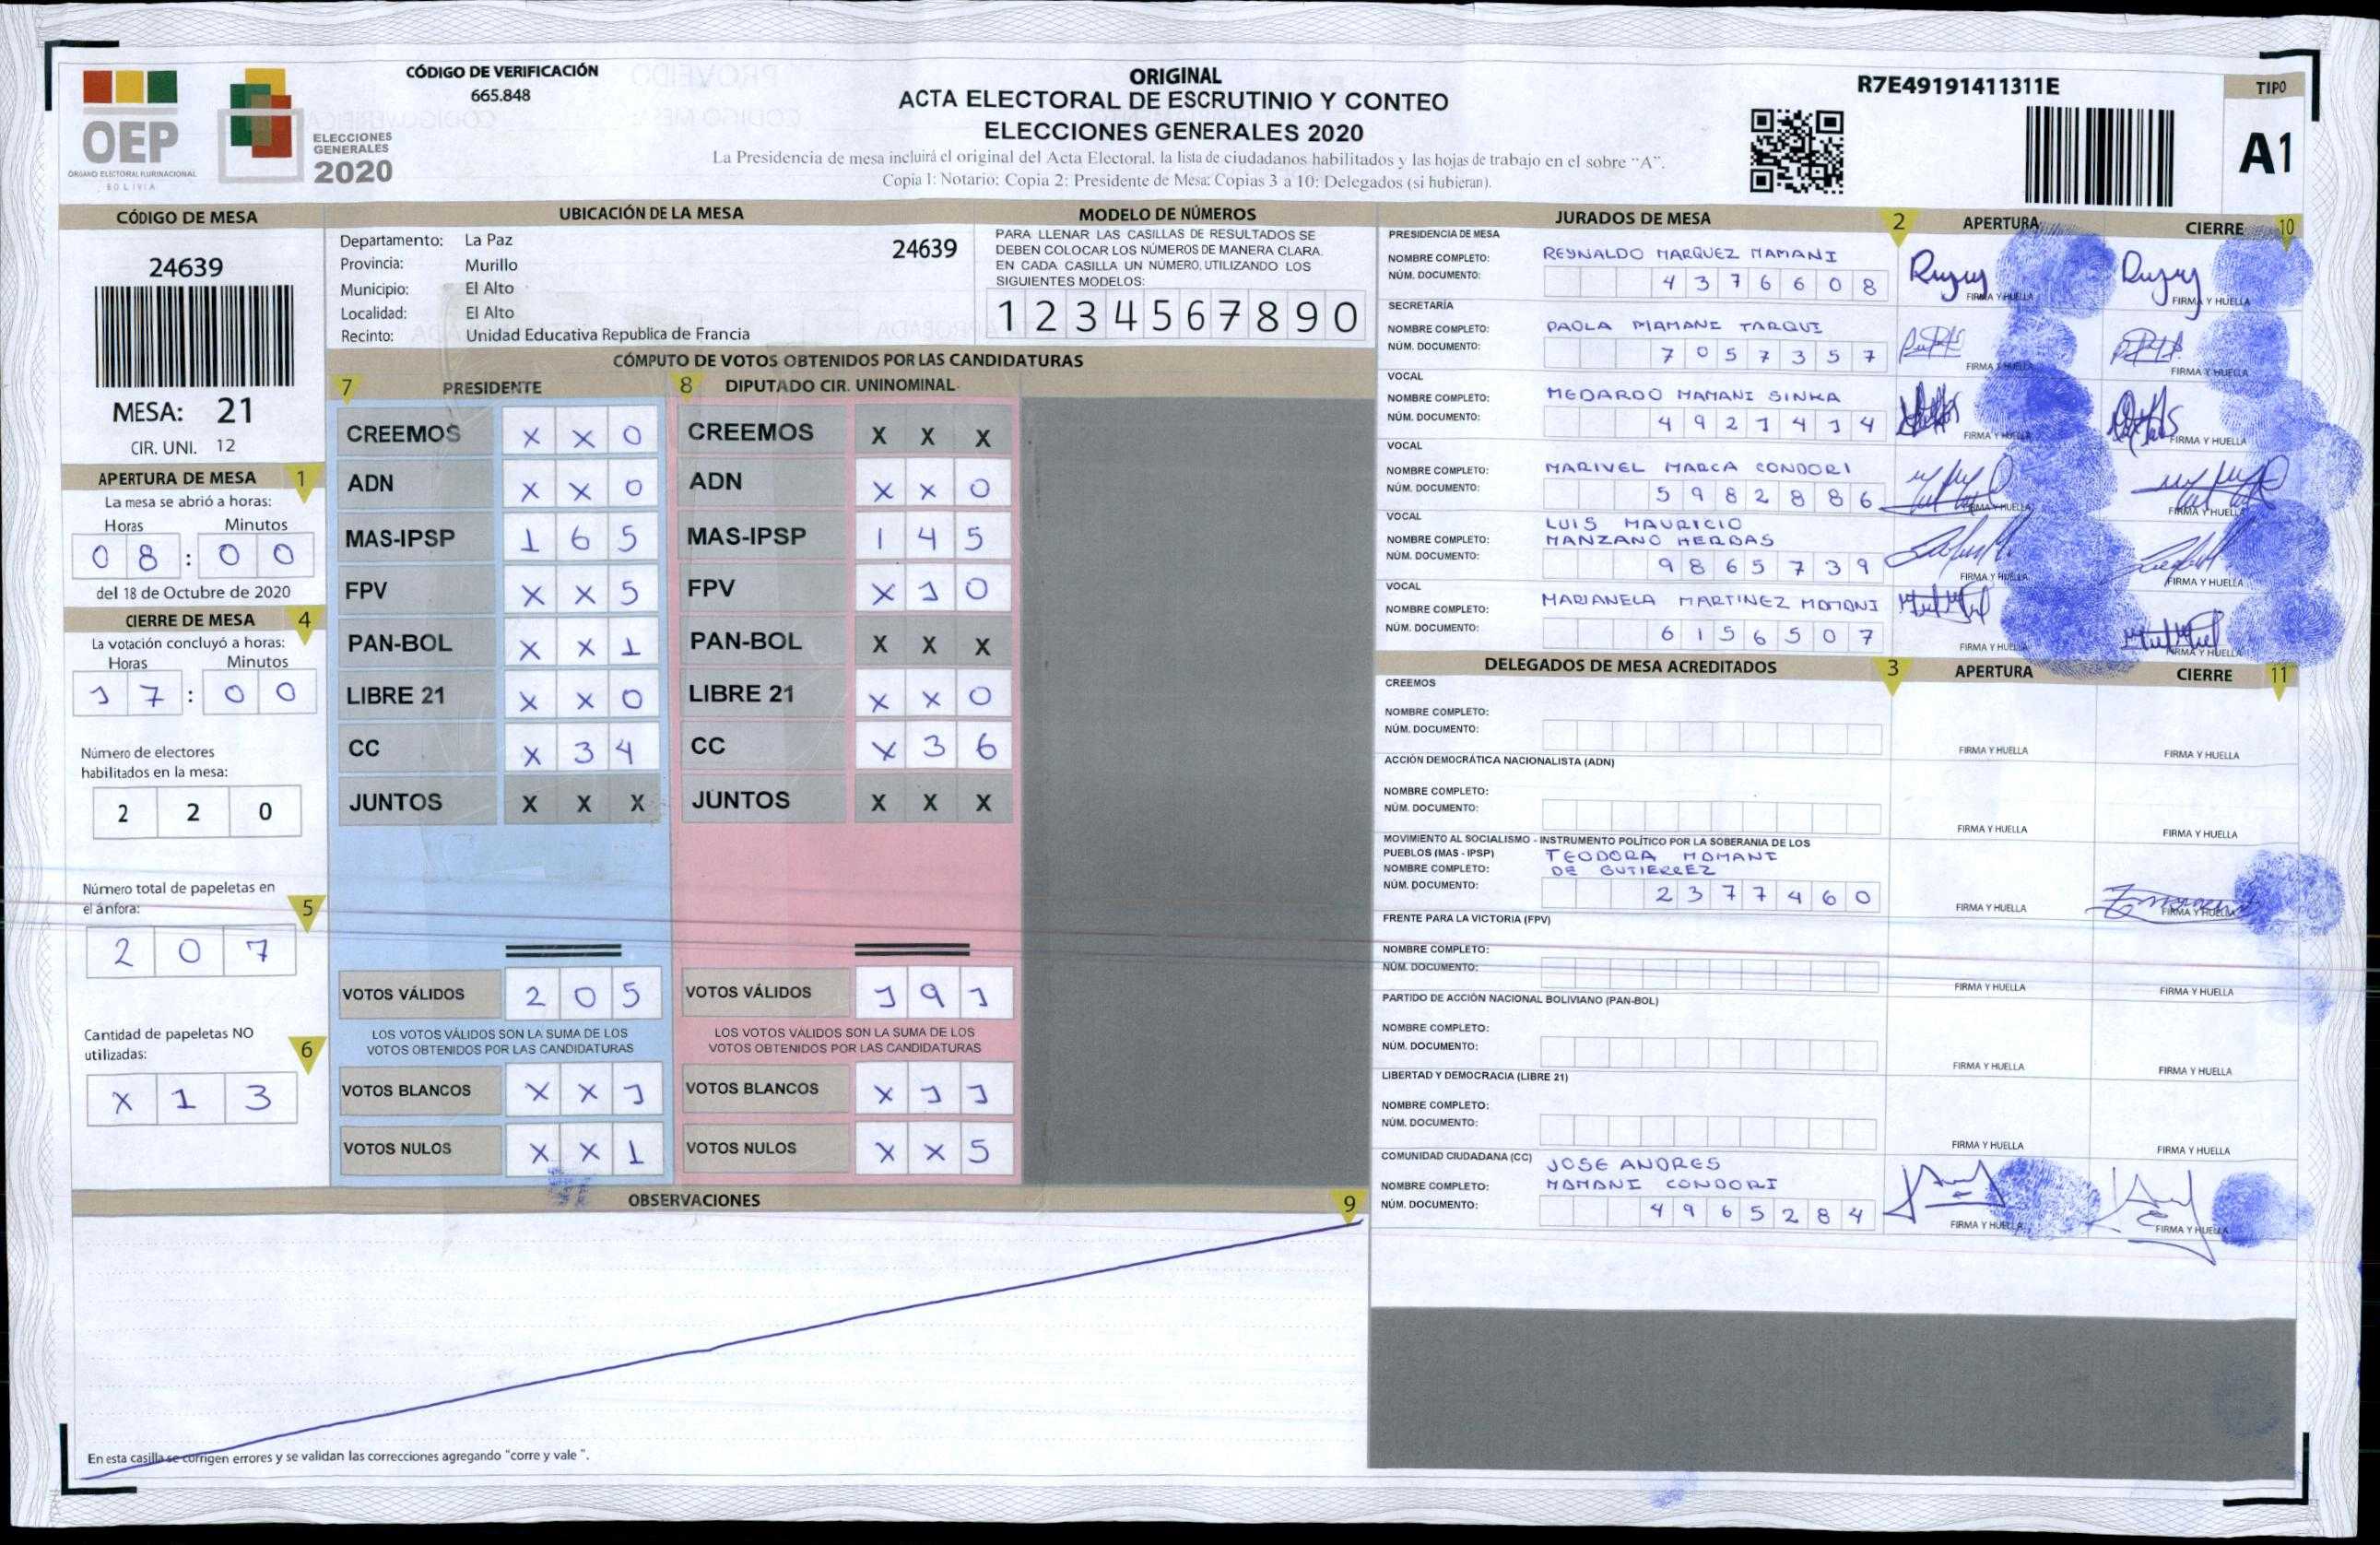 CÓDIGO DE VERIFICACIÓN
665.848
OEP
ÓRGANO ELECTORAL PLURINACIONAL
BOLIVIA
ELECCIONES
GENERALES
2020
ORIGINAL
ACTA ELECTORAL DE ESCRUTINIO Y CONTEO
ELECCIONES GENERALES 2020
La Presidencia de mesa incluirá el original del Acta Electoral, la lista de ciudadanos habilitados y las hojas de trabajo en el sobre "A".
Copia 1: Notario; Copia 2: Presidente de Mesa; Copias 3 a 10: Delegados (si hubieran).
R7E49191411311E
TIPO
A1
CÓDIGO DE MESA
24639
MESA: 21
CIR. UNI. 12
APERTURA DE MESA 1
La mesa se abrió a horas:
Horas Minutos
0 8 : 0 0
del 18 de Octubre de 2020
CIERRE DE MESA 4
La votación concluyó a horas:
Horas Minutos
1 7 : 0 0
Número de electores
habilitados en la mesa:
2 2 0
Número total de papeletas en
el ánfora: 5
2 0 7
Cantidad de papeletas NO
utilizadas: 6
X 1 3
UBICACIÓN DE LA MESA
Departamento: La Paz 24639
Provincia: Murillo
Municipio: El Alto
Localidad: El Alto
Recinto: Unidad Educativa Republica de Francia
MODELO DE NÚMEROS
PARA LLENAR LAS CASILLAS DE RESULTADOS SE
DEBEN COLOCAR LOS NÚMEROS DE MANERA CLARA.
EN CADA CASILLA UN NÚMERO, UTILIZANDO LOS
SIGUIENTES MODELOS:
1 2 3 4 5 6 7 8 9 0
CÓMPUTO DE VOTOS OBTENIDOS POR LAS CANDIDATURAS
7 PRESIDENTE 8 DIPUTADO CIR. UNINOMINAL
CREEMOS X X 0 CREEMOS X X X
ADN X X 0 ADN X X 0
MAS-IPSP 1 6 5 MAS-IPSP 1 4 5
FPV X X 5 FPV X 1 0
PAN-BOL X X 1 PAN-BOL X X X
LIBRE 21 X X 0 LIBRE 21 X X 0
CC X 3 4 CC X 3 6
JUNTOS X X X JUNTOS X X X
VOTOS VÁLIDOS 2 0 5 VOTOS VÁLIDOS 1 9 1
LOS VOTOS VÁLIDOS SON LA SUMA DE LOS LOS VOTOS VÁLIDOS SON LA SUMA DE LOS
VOTOS OBTENIDOS POR LAS CANDIDATURAS VOTOS OBTENIDOS POR LAS CANDIDATURAS
VOTOS BLANCOS X X 1 VOTOS BLANCOS X 1 1
VOTOS NULOS X X 1 VOTOS NULOS X X 5
OBSERVACIONES 9
En esta casilla se corrigen errores y se validan las correcciones agregando "corre y vale ".
JURADOS DE MESA 2 APERTURA CIERRE 10
PRESIDENCIA DE MESA
NOMBRE COMPLETO: REYNALDO MARQUEZ MAMANI
NÚM. DOCUMENTO: 4 3 7 6 6 0 8
FIRMA Y HUELLA FIRMA Y HUELLA
SECRETARÍA
NOMBRE COMPLETO: PAOLA MAMANI TARQUI
NÚM. DOCUMENTO: 7 0 5 7 3 5 7
FIRMA Y HUELLA FIRMA Y HUELLA
VOCAL
NOMBRE COMPLETO: MEDARDO MAMANI SINKA
NÚM. DOCUMENTO: 4 9 2 1 4 1 4
FIRMA Y HUELLA FIRMA Y HUELLA
VOCAL
NOMBRE COMPLETO: MARIVEL MARCA CONDORI
NÚM. DOCUMENTO: 5 9 8 2 8 8 6
FIRMA Y HUELLA FIRMA Y HUELLA
VOCAL
LUIS MAURICIO
NOMBRE COMPLETO: MANZANO HERBAS
NÚM. DOCUMENTO: 9 8 6 5 7 3 9
FIRMA Y HUELLA FIRMA Y HUELLA
VOCAL
NOMBRE COMPLETO: MARIANELA MARTINEZ MAMANI
NÚM. DOCUMENTO: 6 1 5 6 5 0 7
FIRMA Y HUELLA FIRMA Y HUELLA
DELEGADOS DE MESA ACREDITADOS 3 APERTURA CIERRE 11
CREEMOS
NOMBRE COMPLETO:
NÚM. DOCUMENTO:
FIRMA Y HUELLA FIRMA Y HUELLA
ACCIÓN DEMOCRÁTICA NACIONALISTA (ADN)
NOMBRE COMPLETO:
NÚM. DOCUMENTO:
FIRMA Y HUELLA FIRMA Y HUELLA
MOVIMIENTO AL SOCIALISMO - INSTRUMENTO POLÍTICO POR LA SOBERANIA DE LOS
PUEBLOS (MAS - IPSP) TEODORA MAMANI
NOMBRE COMPLETO: DE GUTIERREZ
NÚM. DOCUMENTO: 2 3 7 7 4 6 0
FIRMA Y HUELLA FIRMA Y HUELLA
FRENTE PARA LA VICTORIA (FPV)
NOMBRE COMPLETO:
NÚM. DOCUMENTO:
FIRMA Y HUELLA FIRMA Y HUELLA
PARTIDO DE ACCIÓN NACIONAL BOLIVIANO (PAN-BOL)
NOMBRE COMPLETO:
NÚM. DOCUMENTO:
FIRMA Y HUELLA FIRMA Y HUELLA
LIBERTAD Y DEMOCRACIA (LIBRE 21)
NOMBRE COMPLETO:
NÚM. DOCUMENTO:
FIRMA Y HUELLA FIRMA Y HUELLA
COMUNIDAD CIUDADANA (CC) JOSE ANDRES
NOMBRE COMPLETO: MAMANI CONDORI
NÚM. DOCUMENTO: 4 9 6 5 2 8 4
FIRMA Y HUELLA FIRMA Y HUELLA